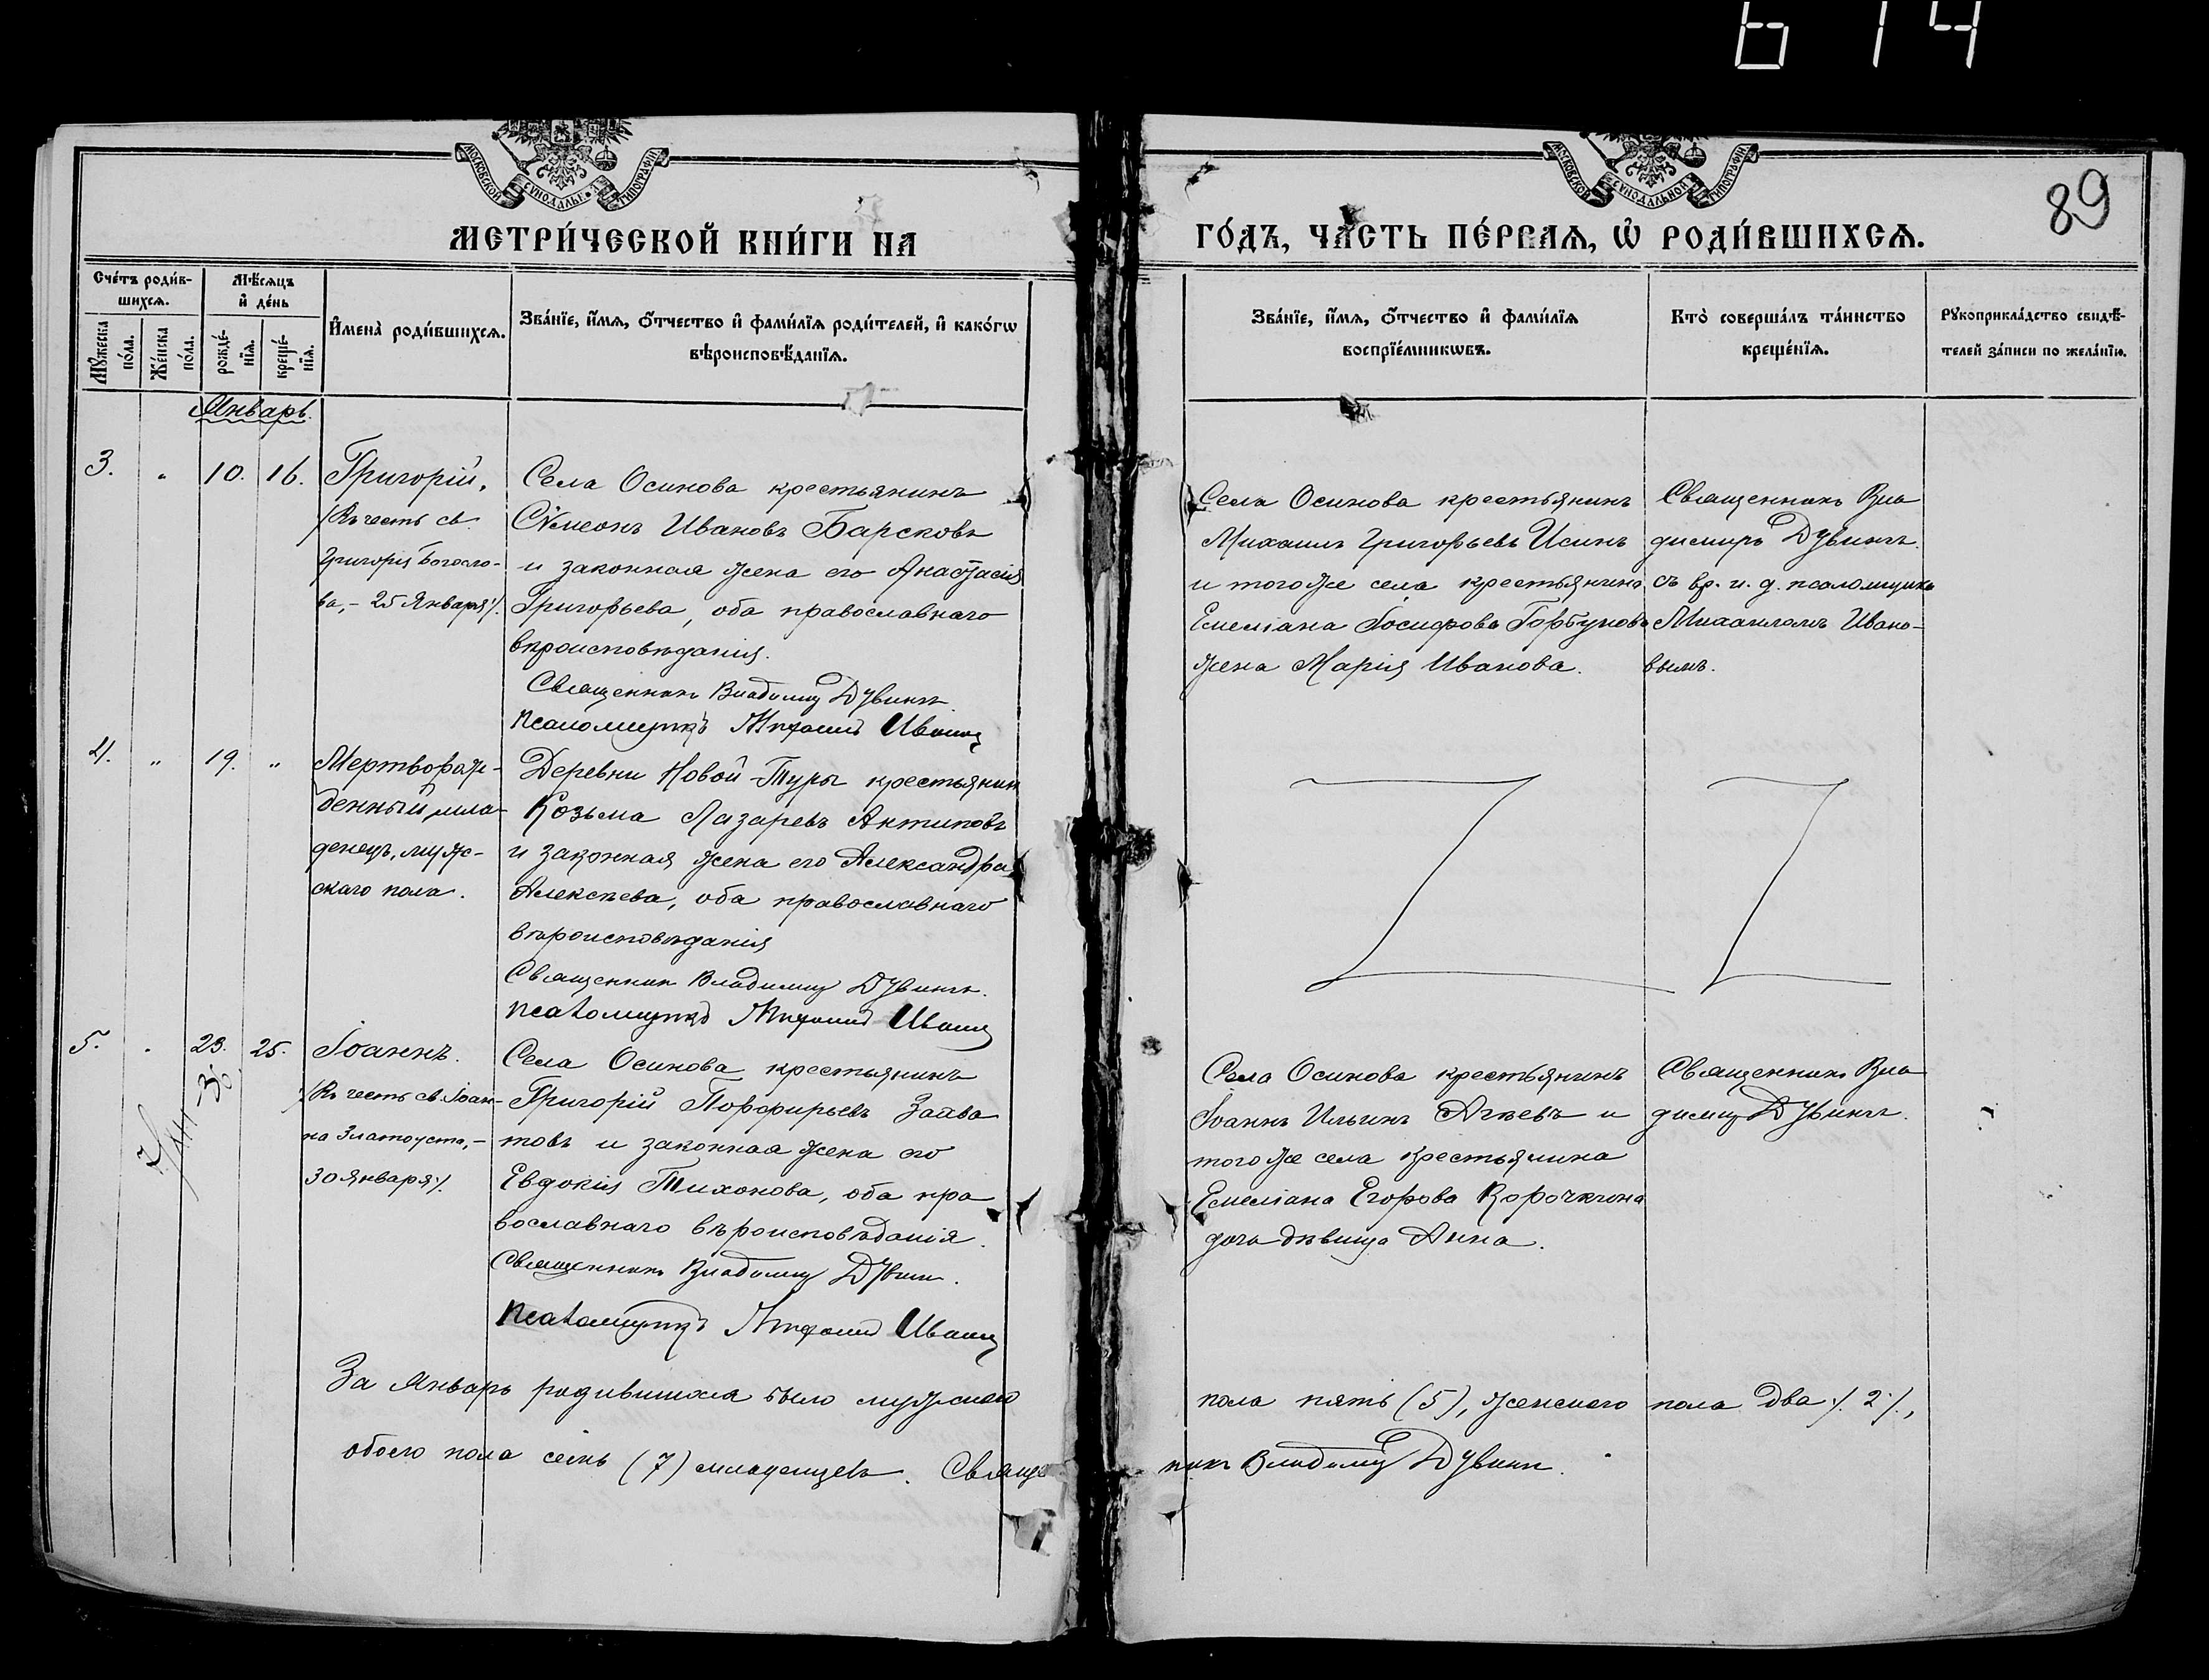 614
МОСКОВСКОЙ СУНОДАЛЬНОЙ ТИПОГРАФІИ
МОСКОВСКОЙ СУНОДАЛЬНОЙ ТИПОГРАФІИ
89
МЕТРИ́ЧЕСКОЙ КНИ́ГИ НА
ГО́ДЪ, ЧА́СТЬ ПЕ́РВАЯ, Ѡ҆ РОДИ́ВШИХСЯ.
Сче́тъ роди́в-
шихся.
Мѣ́сяцъ
и҆ де́нь
Мꙋ́жеска по́ла.
Же́нска по́ла.
рожде́-нїя.
креще́-нїя.
И҆мена̀ роди́вшихся.
Зва́нїе, и҆́мя, ѻ҆́тчество и҆ фами́лїя роди́телей, и҆ како́гѡ
вѣроисповѣ́данїя.
Зва́нїе, и҆́мя, ѻ҆́тчество и҆ фами́лїя
воспрїе́мникѡвъ.
Кто̀ соверша́лъ та́инство
креще́нїя.
Рꙋкоприкла́дство свидѣ́-
телей за́писи по жела́нїю.
Январь.
3. „ 10. 16.
Григорій.
/Въ честь св.
Григорія Богосло-
ва, – 25 Января/.
Села Осинова крестьянинъ
Сѵмеонъ Ивановъ Барсковъ
и законная жена его Анастасія
Григорьева, оба православнаго
вѣроисповѣданія.
Священникъ Владимиръ Дувингъ.
Псаломщикъ Ивановъ
Села Осинова крестьянинъ
Михаилъ Григорьевъ Исинъ
и того же села крестьянина
Емеліана Іосифова Горбунова
жена Марія Иванова.
Священникъ Вла
димиръ Дувингъ.
съ вр. и. д. псаломщика
Михаиломъ Ивано-
вымъ.
4. „ 19. „
Мертворож-
денный мла-
денецъ, муж-
скаго пола.
Деревни Новой-Туры крестьянин
Козьма Лазаревъ Антиповъ
и законная жена его Александра
Алексѣева, оба православнаго
вѣроисповѣданія
Священникъ Владимиръ Дувингъ.
Псаломщикъ Ивановъ
5. „ 23. 25.
Іоаннъ.
/Въ честь св. Іоан-
на Златоуста, –
30 Января/.
Села Осинова крестьянинъ
Григорій Порфирьевъ
товъ и законная жена его
Евдокія Тихонова, оба пра
вославнаго вѣроисповѣданія.
Священникъ Владимиръ Дувингъ.
Псаломщикъ Ивановъ
Села Осинова крестьянинъ
Іоаннъ Ильинъ Агѣевъ и
того же села крестьянина
Емеліана Егорова Корочкина
дочь дѣвица Анна.
Священникъ Вла
димиръ Дувингъ.
За Январь родившихся было мужскаго
пола пять (5), женскаго пола два /2/,
обоего пола семь (7) младенцевъ. Священ
никъ Владимиръ Дувингъ.